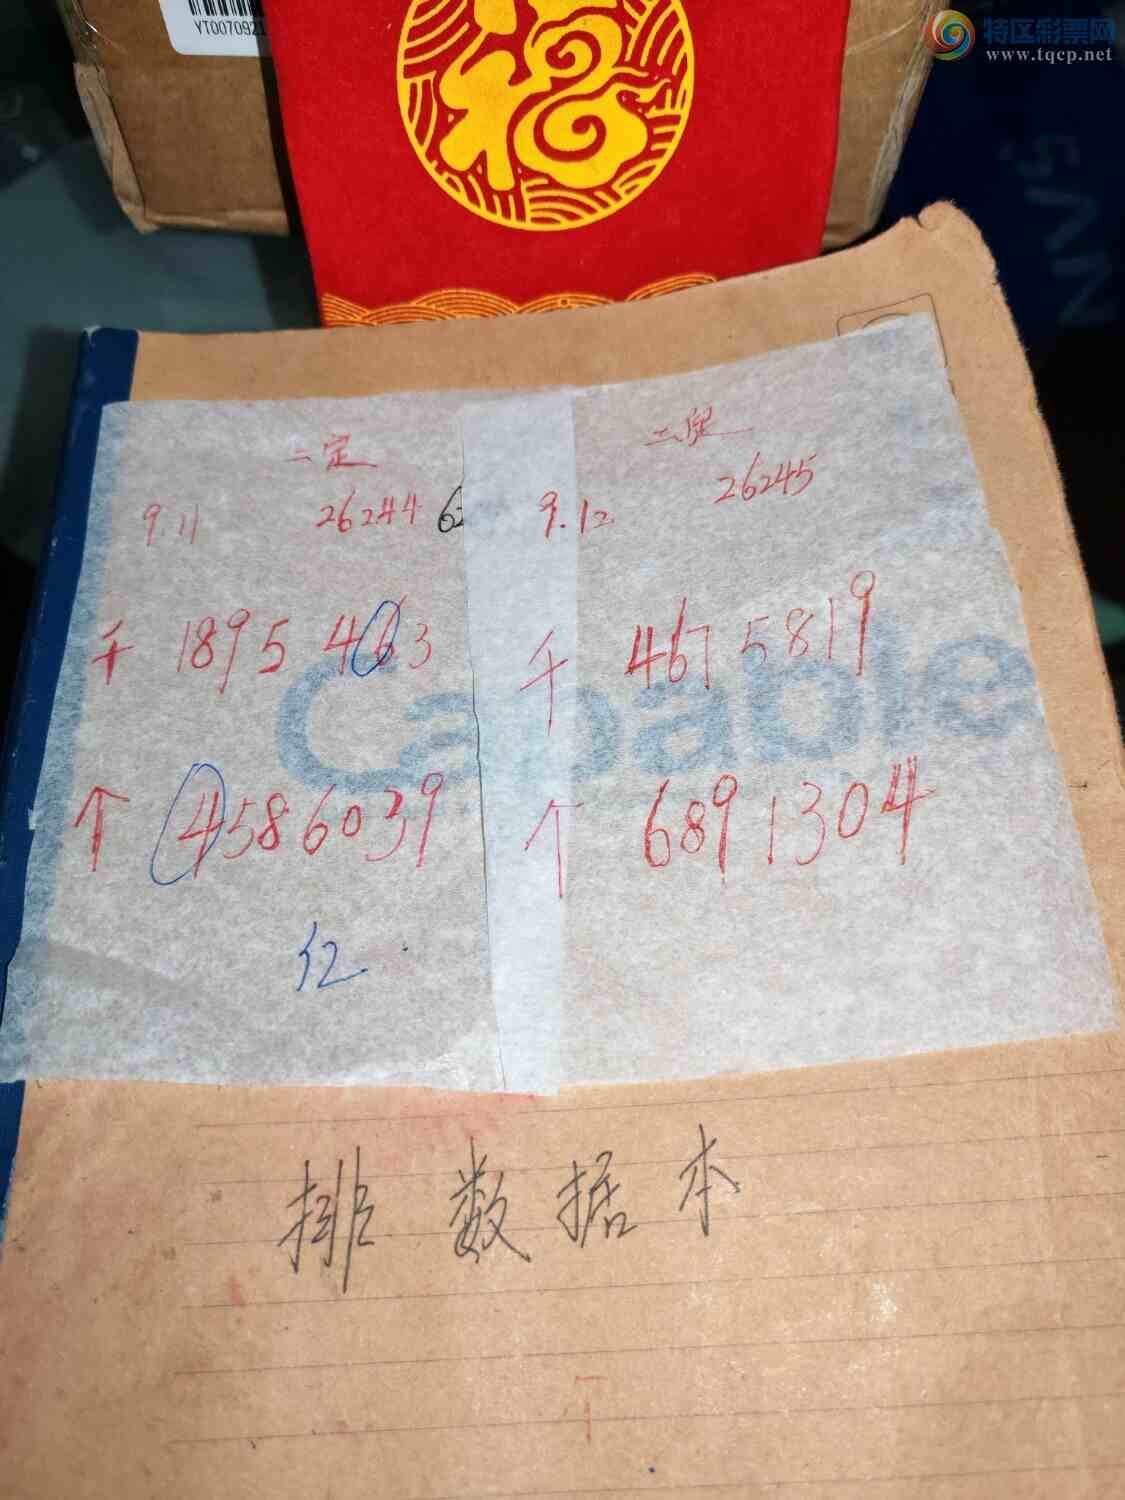 YT0070921
福
特区彩票网
www.tqcp.net
二定
9.11 26244 62
千 1895463
个 4586039
红
二定
9.12 26245
千 4675819
个 6891304
Capable
排数据本
个